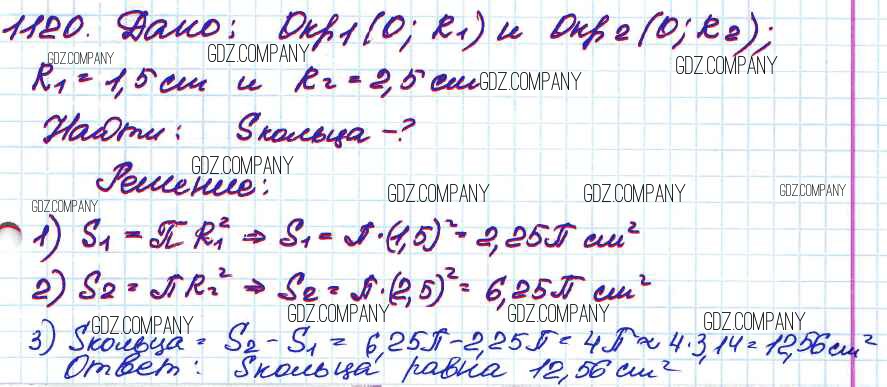 1120. Дано: Окр1(O; R₁) и Окр2(O; R₂);
GDZ.COMPANY GDZ.COMPANY GDZ.COMPANY
R₁ = 1,5 см и R₂ = 2,5 см GDZ.COMPANY
Найти: Sкольца -?
GDZ.COMPANY
Решение: GDZ.COMPANY GDZ.COMPANY GDZ.COMPANY
GDZ.COMPANY
1) S₁ = π R₁² ⇒ S₁ = π·(1,5)² = 2,25π см²
2) S₂ = πR₂² ⇒ S₂ = π·(2,5)² = 6,25π см²
GDZ.COMPANY GDZ.COMPANY GDZ.COMPANY GDZ.COMPANY
3) Sкольца = S₂ - S₁ = 6,25π - 2,25π = 4π ≈ 4·3,14 = 12,56 см²
Ответ: Sкольца равна 12,56 см²